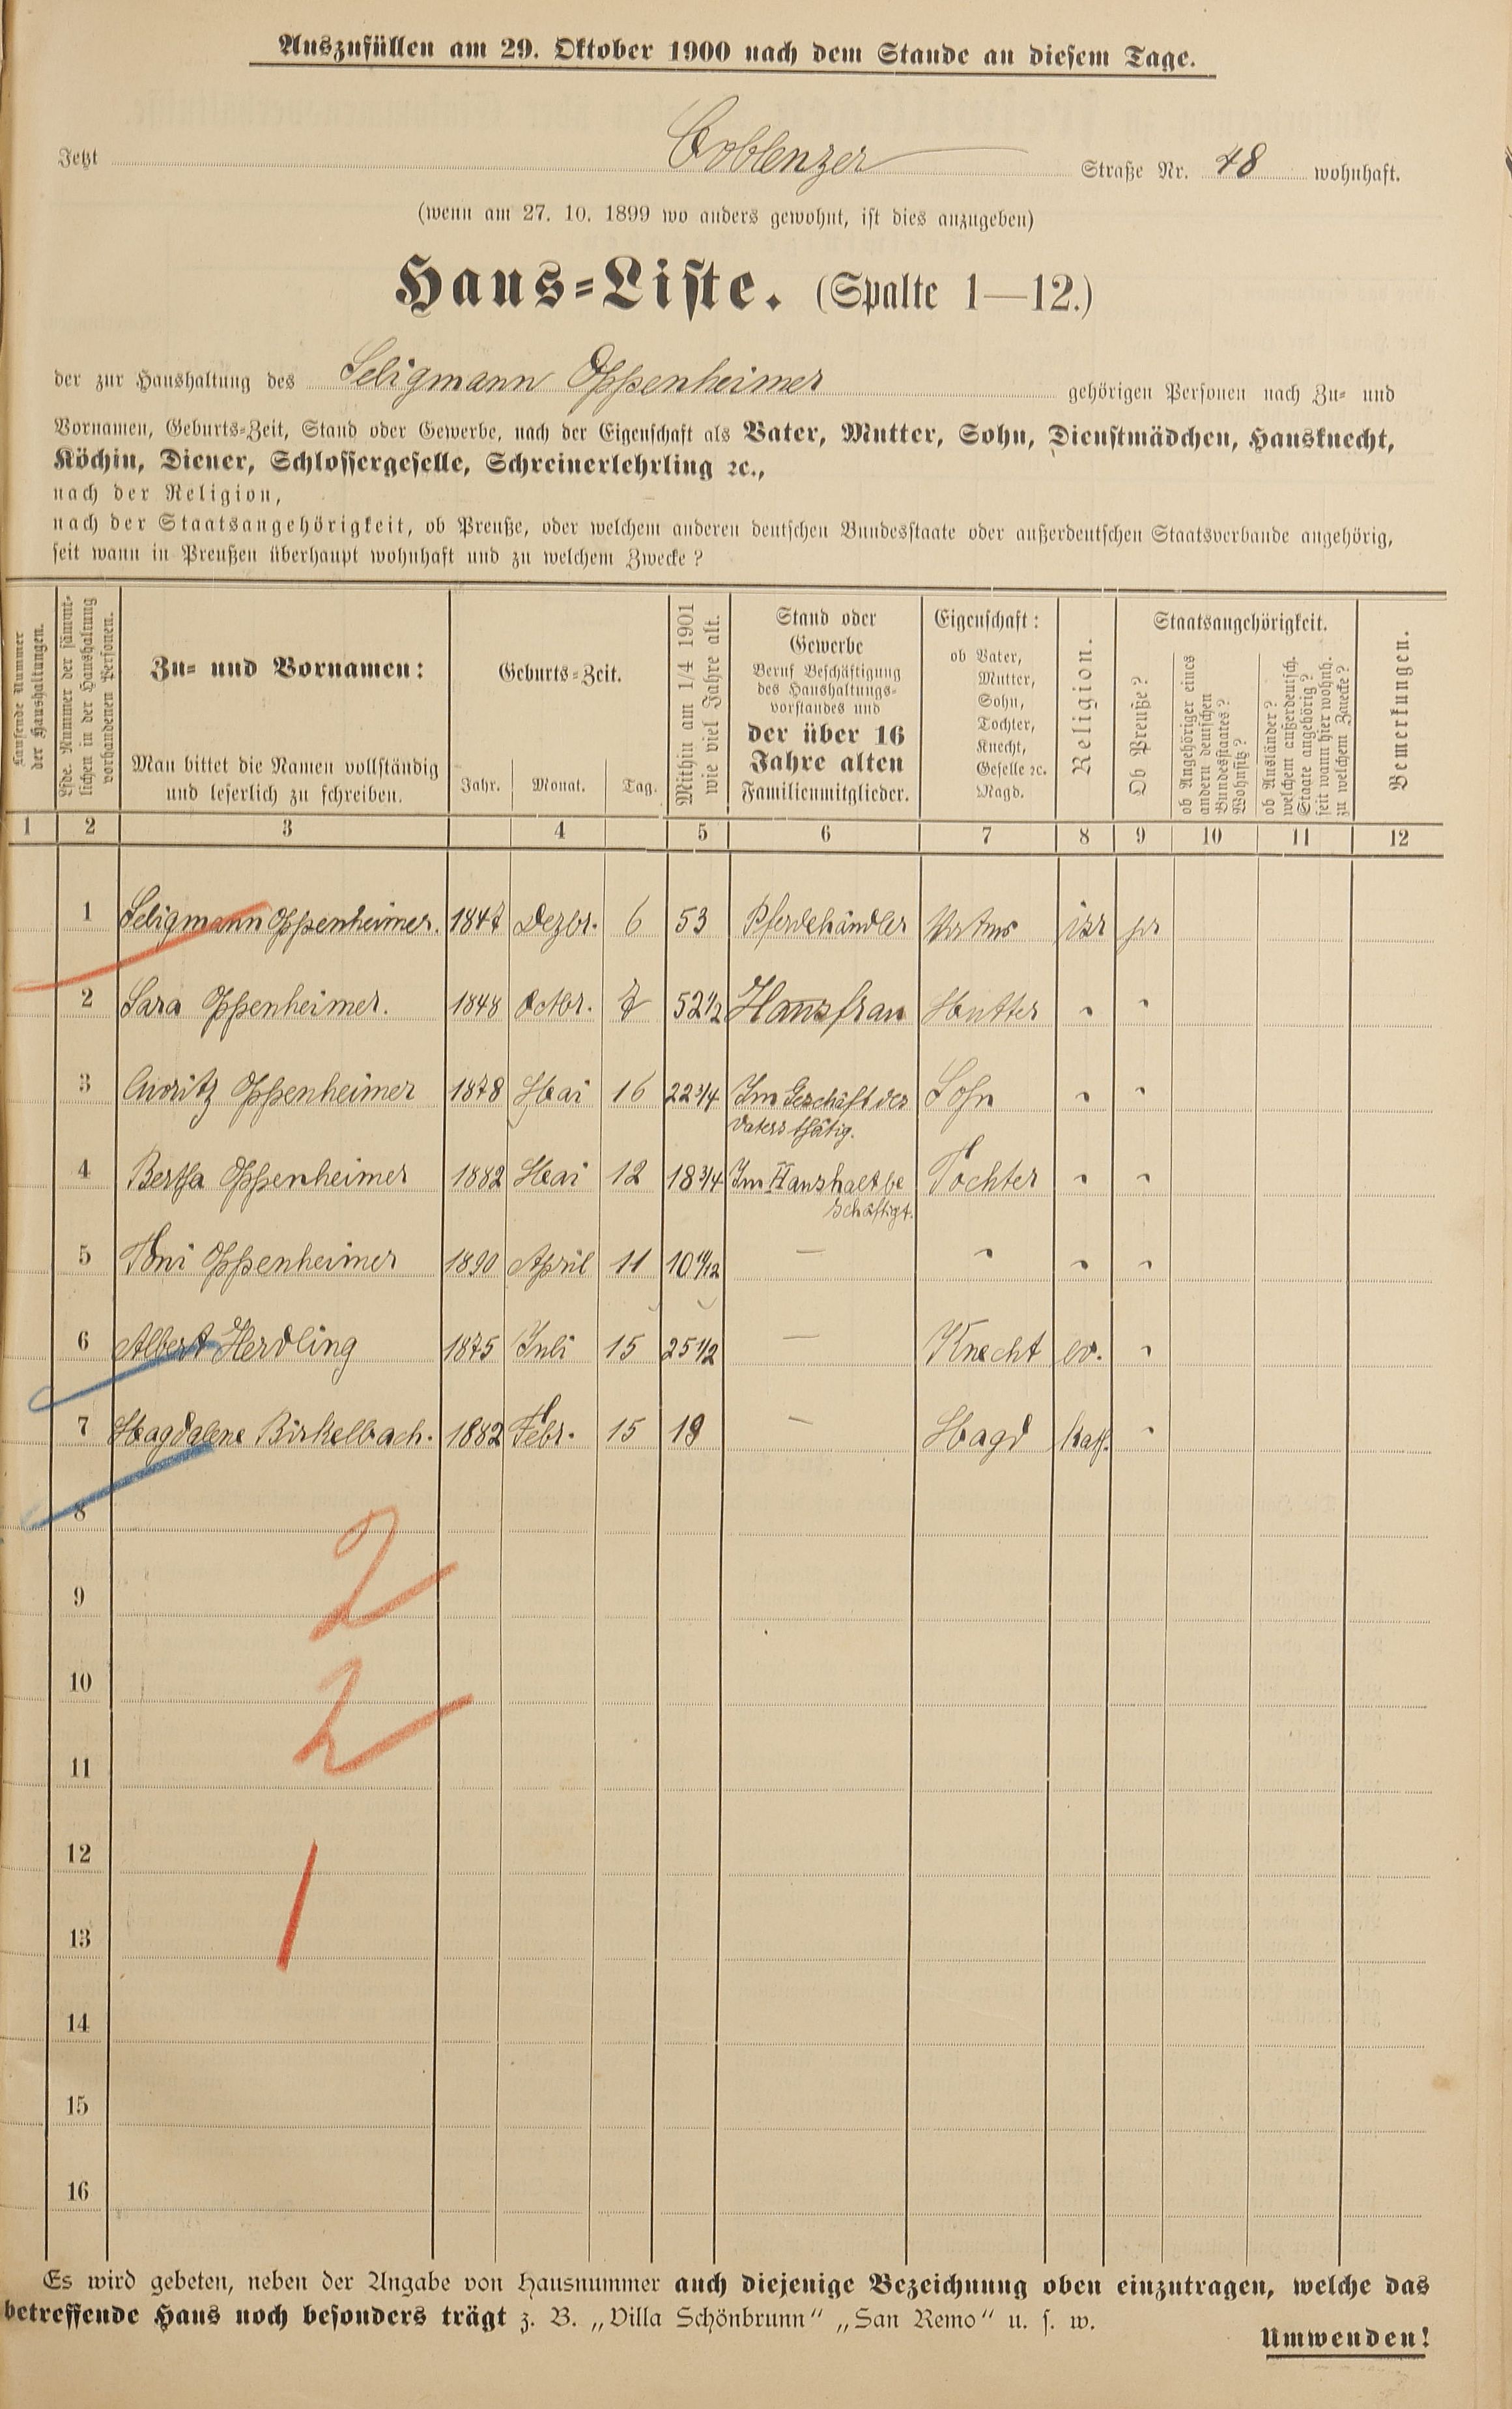 Auszufüllen am 29. Oktober 1900 nach dem Stande an diesem Tage.
Jetzt Coblenzer Straße Nr. 48 wohnhaft.
(wenn am 27. 10. 1899 wo anders gewohnt, ist dies anzugeben)
Haus-Liste. (Spalte 1—12.)
der zur Haushaltung des Seligmann Oppenheimer gehörigen Personen nach Zu- und
Vornamen, Geburts-Zeit, Stand oder Gewerbe, nach der Eigenschaft als Vater, Mutter, Sohn, Dienstmädchen, Hausknecht,
Köchin, Diener, Schlossergeselle, Schreinerlehrling ꝛc.,
nach der Religion,
nach der Staatsangehörigkeit, ob Preuße, oder welchem anderen deutschen Bundesstaate oder außerdeutschen Staatsverbande angehörig,
seit wann in Preußen überhaupt wohnhaft und zu welchem Zwecke?
Laufende Nummer
der Haushaltungen.
Lfde. Nummer der sämmt-
lichen in der Haushaltung
vorhandenen Personen.
Zu- und Vornamen:
Man bittet die Namen vollständig
und leserlich zu schreiben.
Geburts-Zeit.
Jahr. Monat. Tag.
Mithin am 1/4 1901
wie viel Jahre alt.
Stand oder
Gewerbe
Beruf Beschäftigung
des Haushaltungs-
vorstandes und
der über 16
Jahre alten
Familienmitglieder.
Eigenschaft:
ob Vater,
Mutter,
Sohn,
Tochter,
Knecht,
Geselle ꝛc.
Magd.
Religion.
Staatsangehörigkeit.
Ob Preuße?
ob Angehöriger eines
andern deutschen
Bundesstaates?
Wohnsitz?
ob Ausländer?
welchem außerdeutsch.
Staate angehörig?
seit wann hier wohnh.
zu welchem Zwecke?
Bemerkungen.
1 2 3 4 5 6 7 8 9 10 11 12
1 Seligmann Oppenheimer. 1847 Dezbr. 6 53 Pferdehändler isr pr
2 Sara Oppenheimer. 1848 Octbr. 7 52 1/2 Hausfrau Mutter " "
3 Moritz Oppenheimer 1878 Mai 16 22 3/4 Im Geschäft des Sohn " "
Vaters thätig.
4 Bertha Oppenheimer 1882 Mai 12 18 3/4 Im Haushalt be Tochter " "
schäftigt.
5 Toni Oppenheimer 1890 April 11 10 11/12 — " " "
6 Albert Herdling 1875 Juli 15 25 1/2 — Knecht ev. "
7 Magdalene Birkelbach. 1882 Febr. 15 19 — Magd kath. "
8
2
9
10
2
11
12
1
13
14
15
16
Es wird gebeten, neben der Angabe von Hausnummer auch diejenige Bezeichnung oben einzutragen, welche das
betreffende Haus noch besonders trägt z. B. „Villa Schönbrunn“ „San Remo“ u. s. w.
Umwenden!